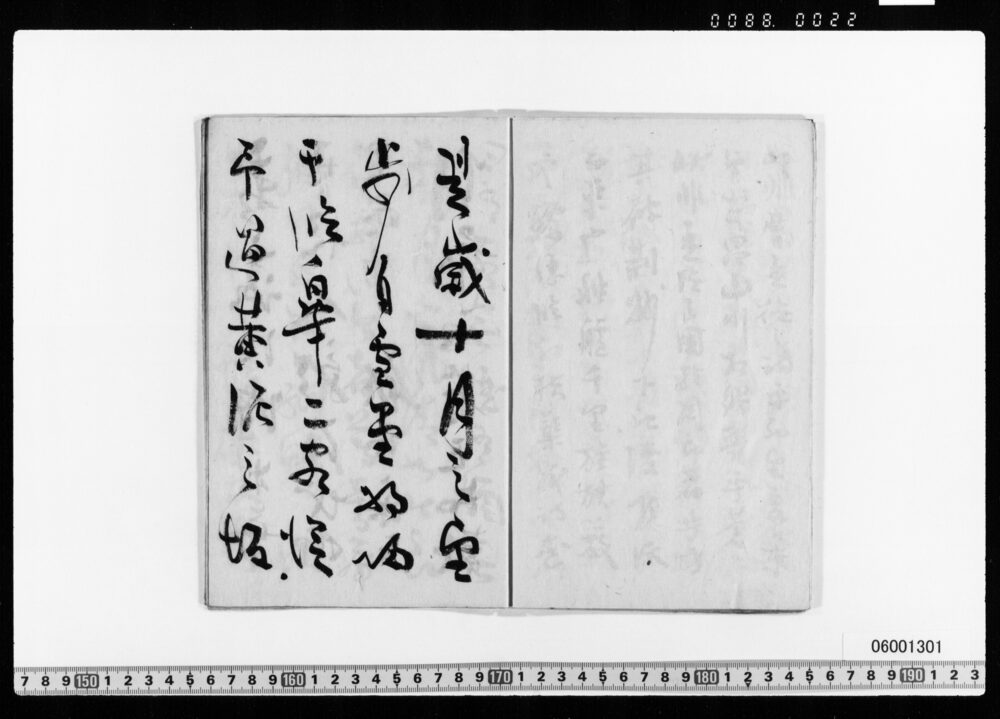 0088. 0022
是歳十月之望
歩自雪堂将帰
于臨皐二客従
予過黄泥之坂
06001301
7 8 9 150 1 2 3 4 5 6 7 8 9 160 1 2 3 4 5 6 7 8 9 170 1 2 3 4 5 6 7 8 9 180 1 2 3 4 5 6 7 8 9 190 1 2 3